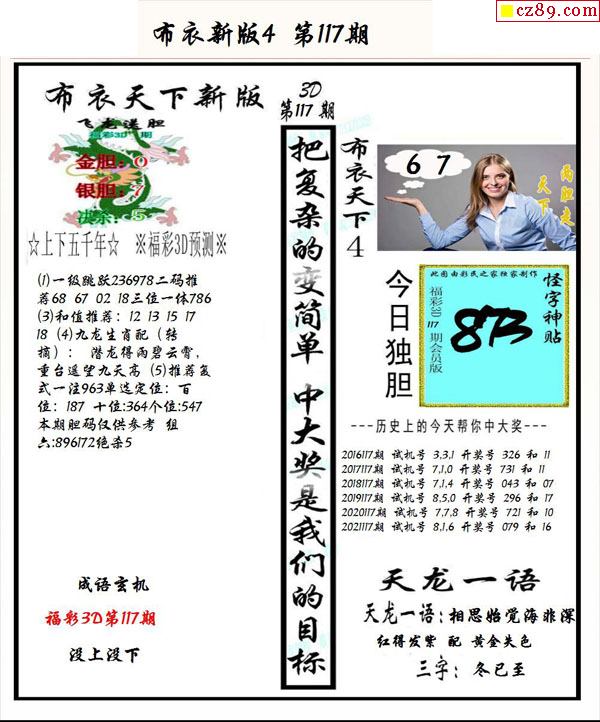 cz89.com
布衣新版4 第117期
布衣天下新版
飞龙送胆
福彩3D 期
金胆: 0
银胆: 7
决杀: 5
☆上下五千年☆ ※福彩3D预测※
(1)一级跳跃236978二码推
荐68 67 02 18三位一体786
(3)和值推荐: 12 13 15 17
18 (4)九龙生肖配 (转
摘): 潜龙得雨碧云霄,
重台遥望九天高 (5)推荐复
式一注963单选定位: 百
位: 187 十位:364个位:547
本期胆码仅供参考 组
六:896172绝杀5
成语玄机
福彩3D第117期
没上没下
3D
第117期
把复杂的变简单 中大奖是我们的目标
布衣天下4
6 7
两胆走天下
今日独胆
此图由彩民之家独家制作
福彩3D 117 期会员版
8B
怪字神贴
---历史上的今天帮你中大奖---
2016117期 试机号 3,3,1 开奖号 326 和 11
2017117期 试机号 7,1,0 开奖号 731 和 11
2018117期 试机号 7,1,4 开奖号 043 和 07
2019117期 试机号 8,5,0 开奖号 296 和 17
2020117期 试机号 7,7,8 开奖号 721 和 10
2021117期 试机号 8,1,6 开奖号 079 和 16
天龙一语
天龙一语: 相思始觉海非深
红得发紫 配 黄金失色
三字: 冬已至